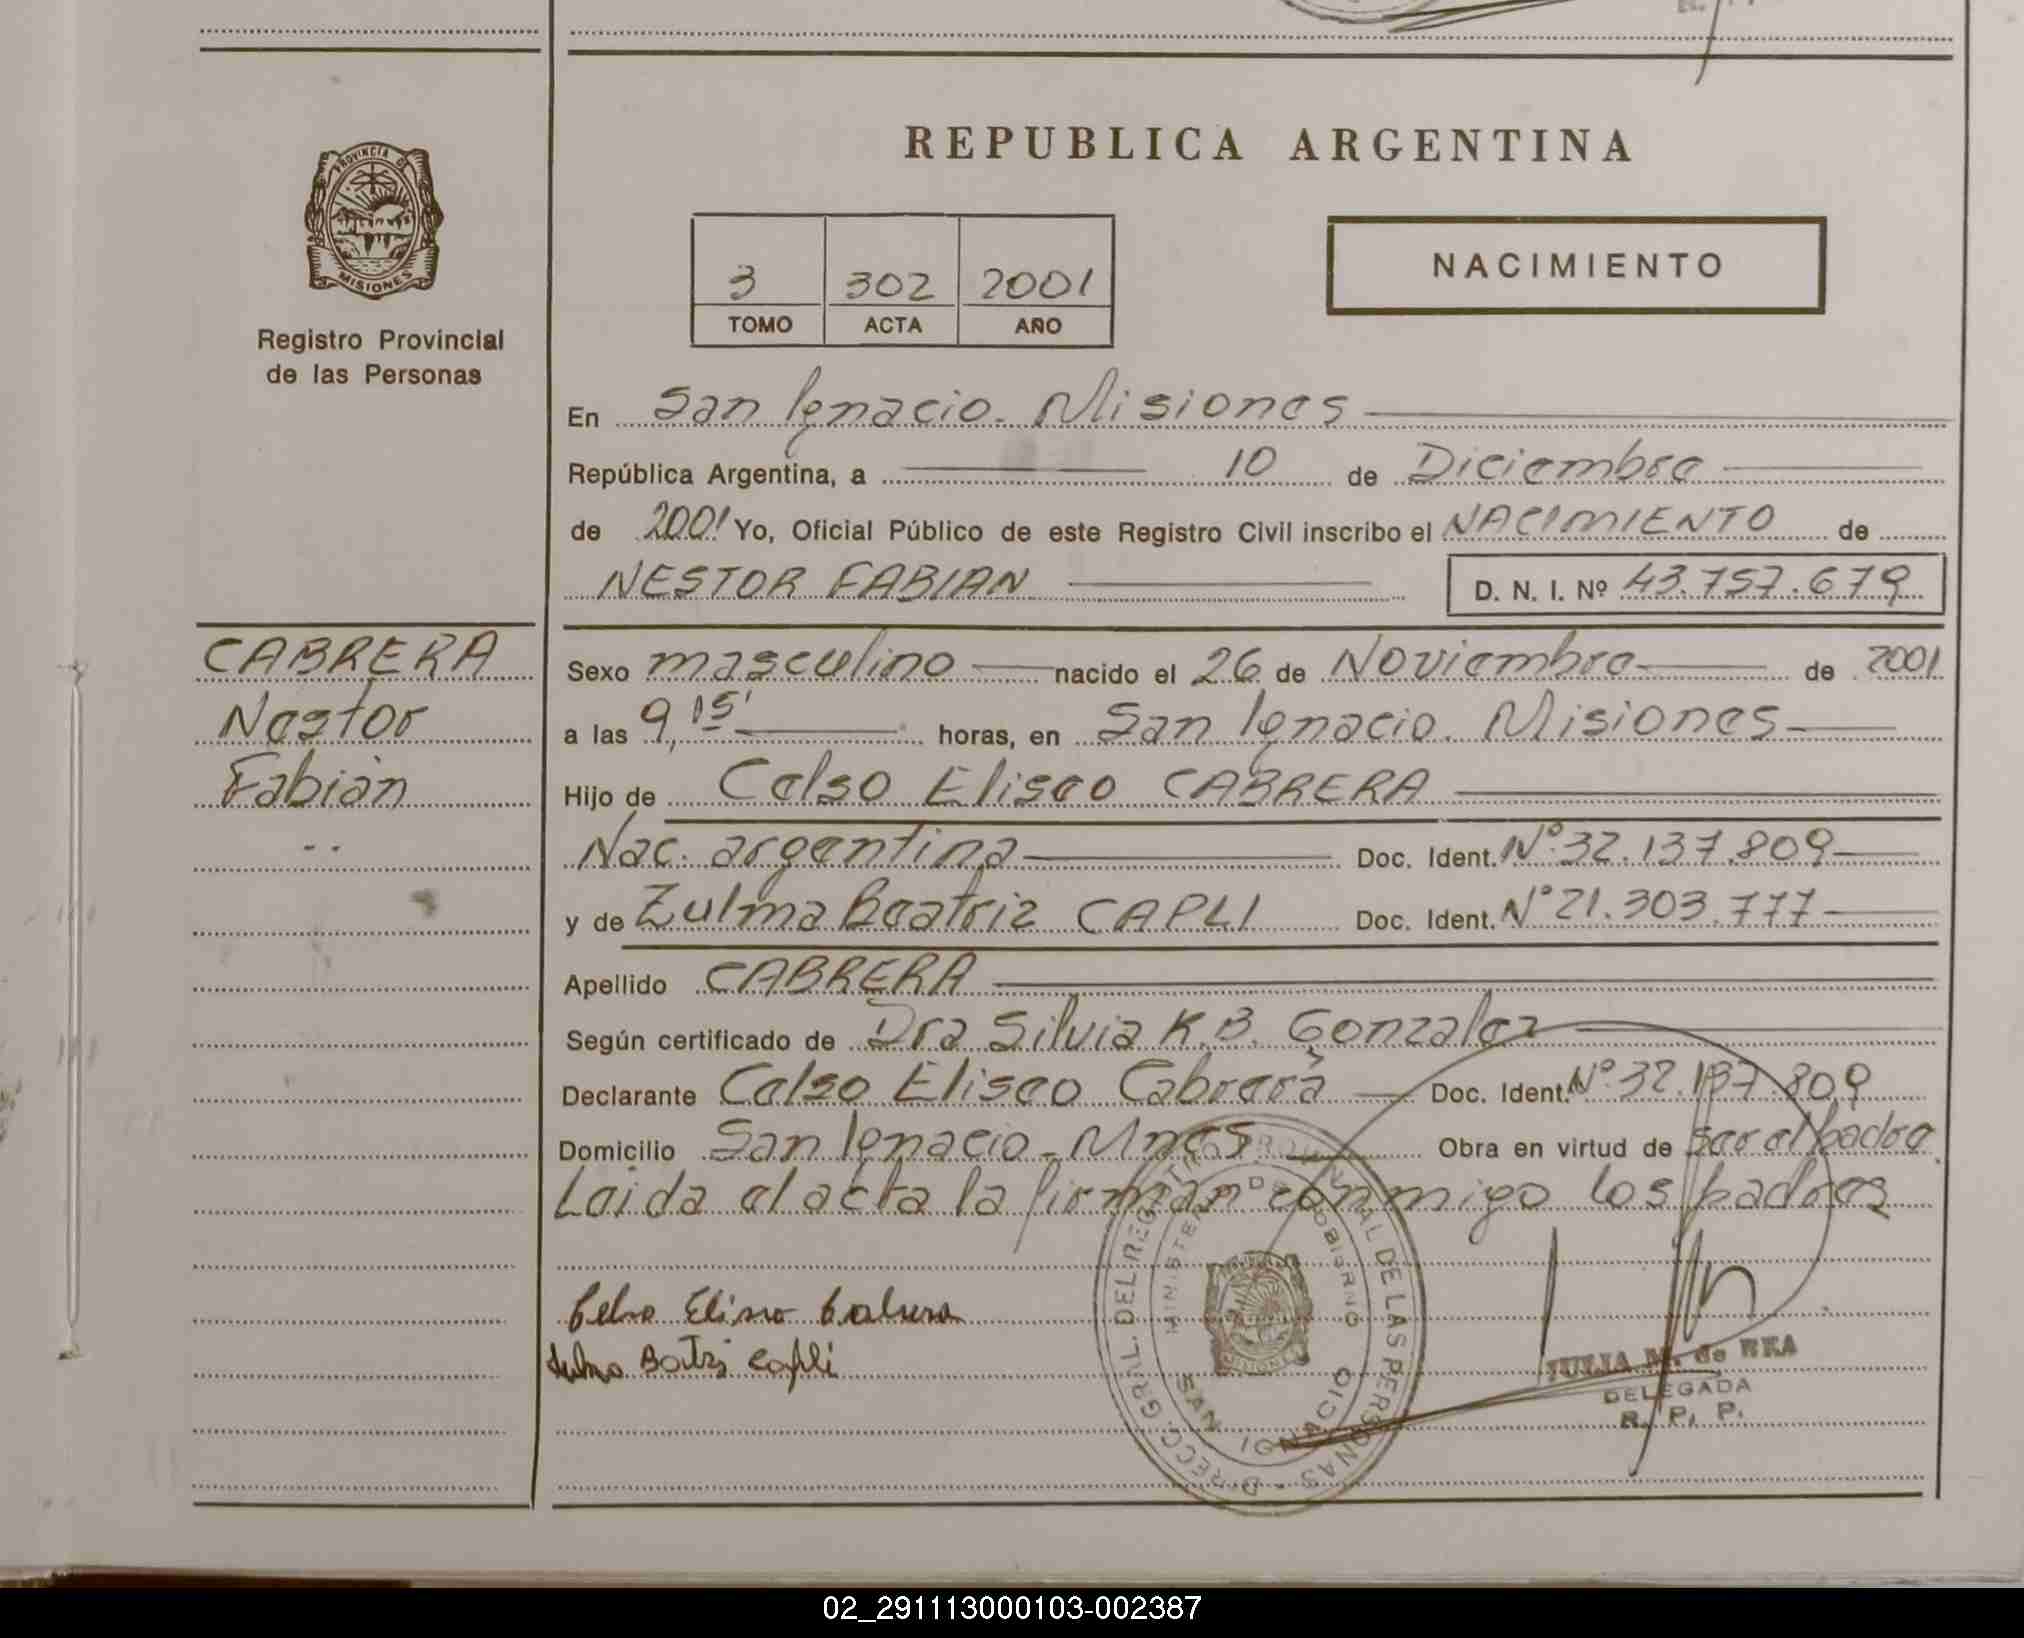 REPUBLICA ARGENTINA
PROVINCIA DE
MISIONES
Registro Provincial
de las Personas
3 302 2001
TOMO ACTA AÑO
NACIMIENTO
En San Ignacio - Misiones
República Argentina, a 10 de Diciembre
de 2001 Yo, Oficial Público de este Registro Civil inscribo el NACIMIENTO de
NESTOR FABIAN D. N. I. Nº 43.757.679
CABRERA
Nestor
Fabián
Sexo masculino nacido el 26 de Noviembre de 2001
a las 9,15' horas, en San Ignacio. Misiones
Hijo de Celso Eliseo CABRERA
Nac. argentina Doc. Ident. Nº 32.137.809
y de Zulma Beatriz CAPLI Doc. Ident. Nº 21.303.777
Apellido CABRERA
Según certificado de Dra Silvia K.B. Gonzalez
Declarante Celso Eliseo Cabrera Doc. Ident. Nº 32.137.809
Domicilio San Ignacio - Mnes Obra en virtud de ser el padre
Leida el acta la firman conmigo los padres
Celso Eliseo Cabrera
Zulma Beatriz Capli
DIRECC. GRAL. DEL REGISTRO PROVINCIAL DE LAS PERSONAS
MINISTERIO DE GOBIERNO
SAN IGNACIO
MISIONES
JULIA M. de REA
DELEGADA
R. P. P.
02_291113000103-002387